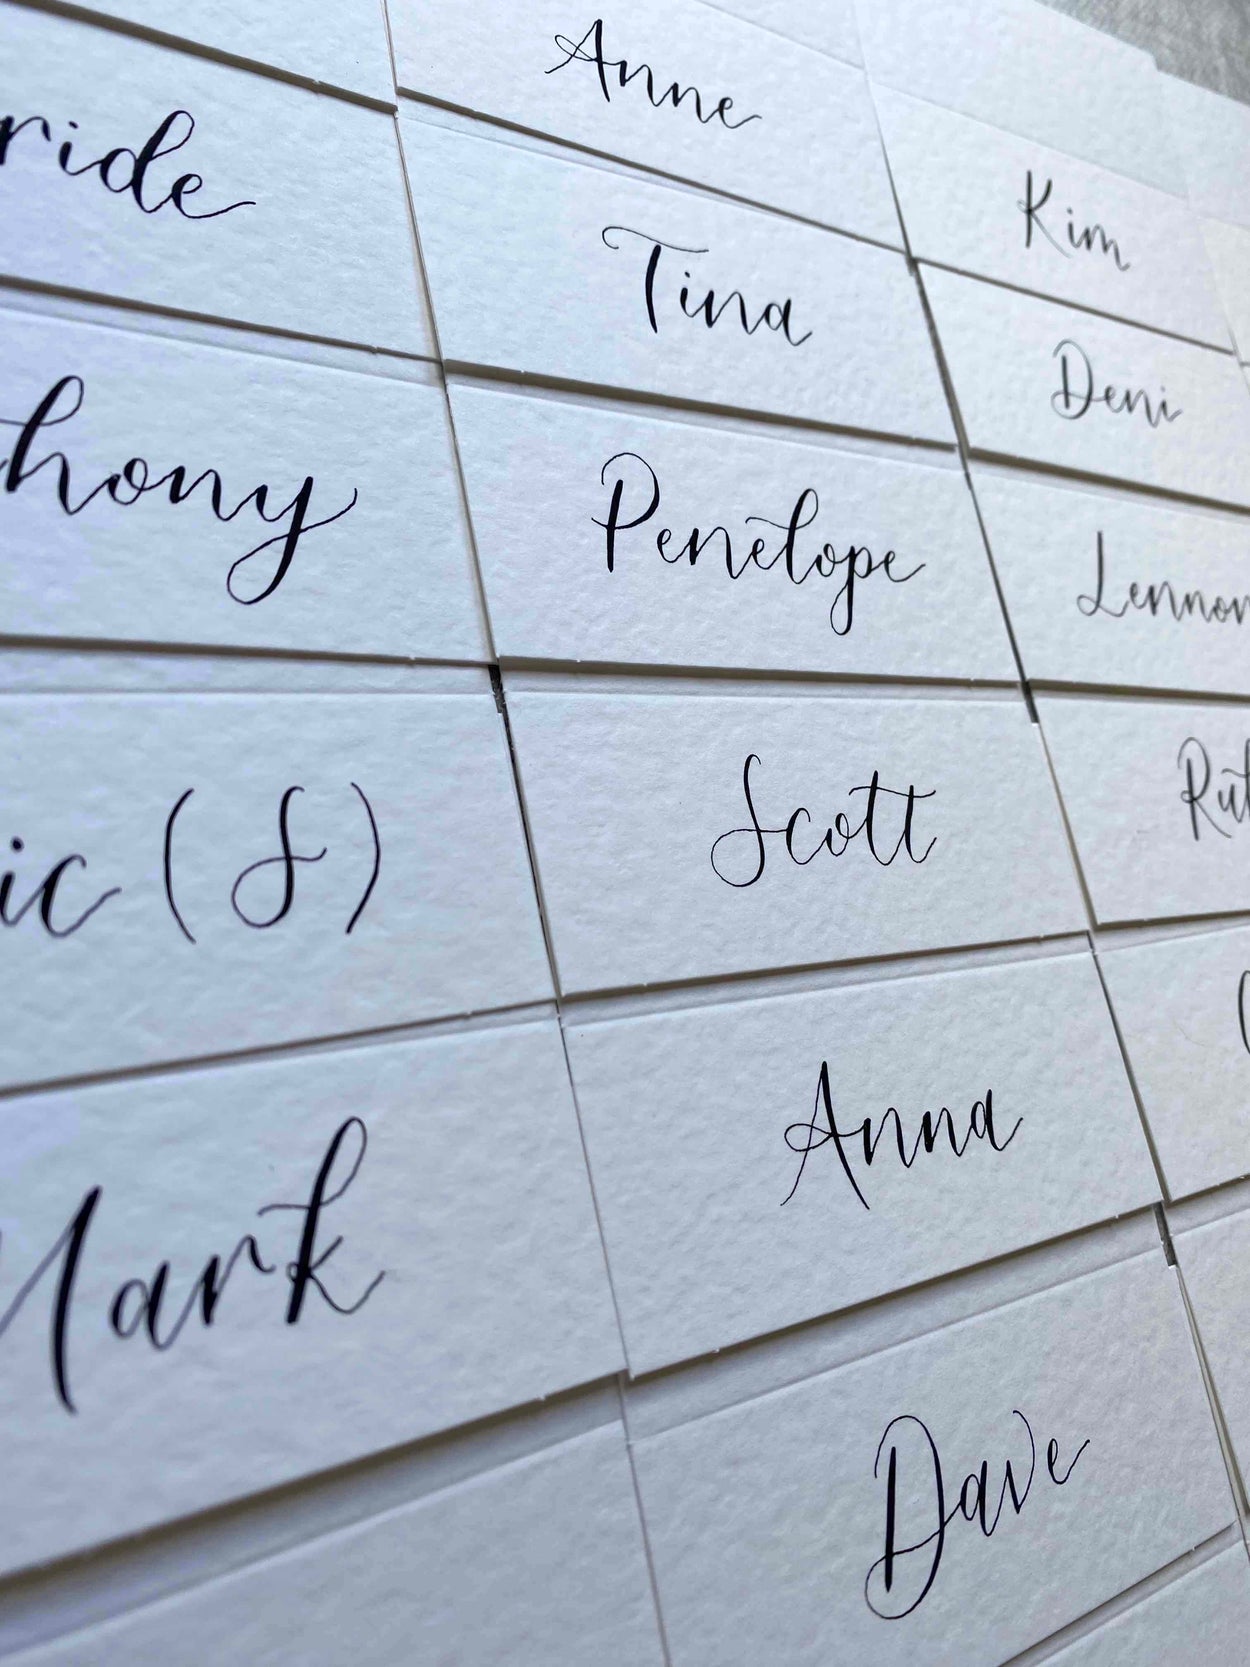 ride
hony
ic (S)
Mark
Anne
Tina
Penelope
Scott
Anna
Dave
Kim
Deni
Lennon
Rut